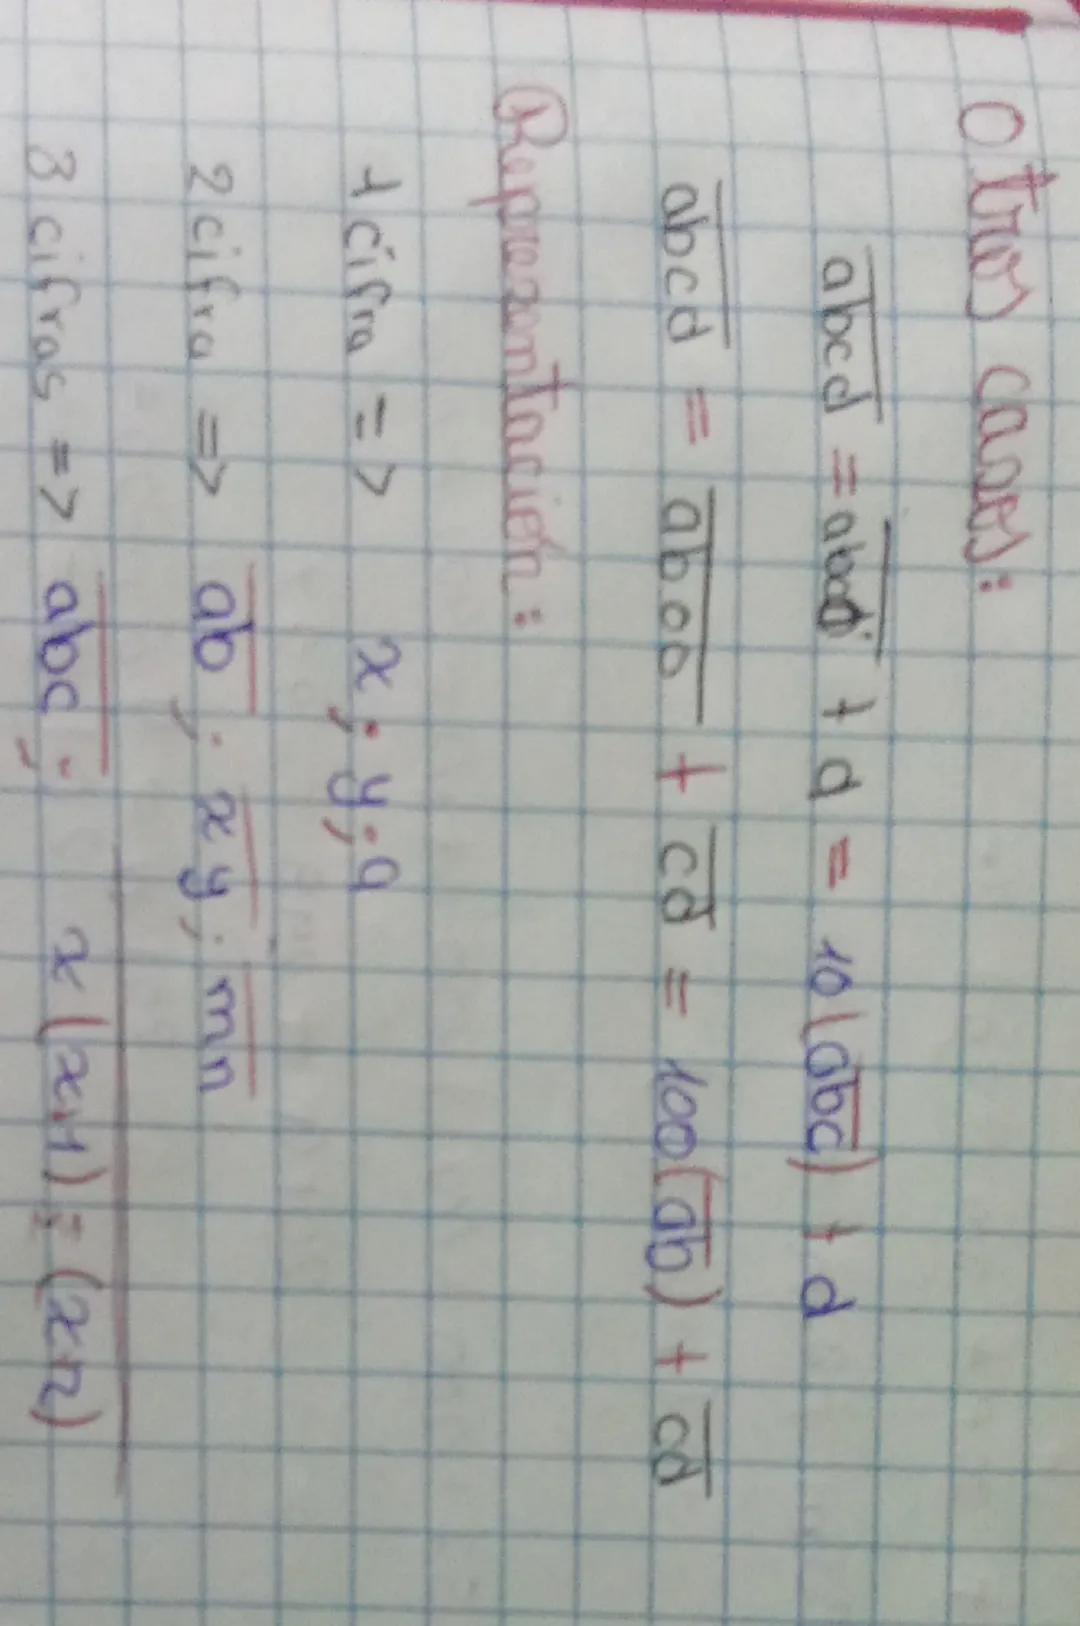 Otros casos:
abcd = abc0 + d = 10(abc) + d
abcd = ab00 + cd = 100(ab) + cd
Reprezentación:
1 cifra => x; y; a
2 cifra => ab; xy; mn
3 cifras => abc; x(x+1); (x+2)